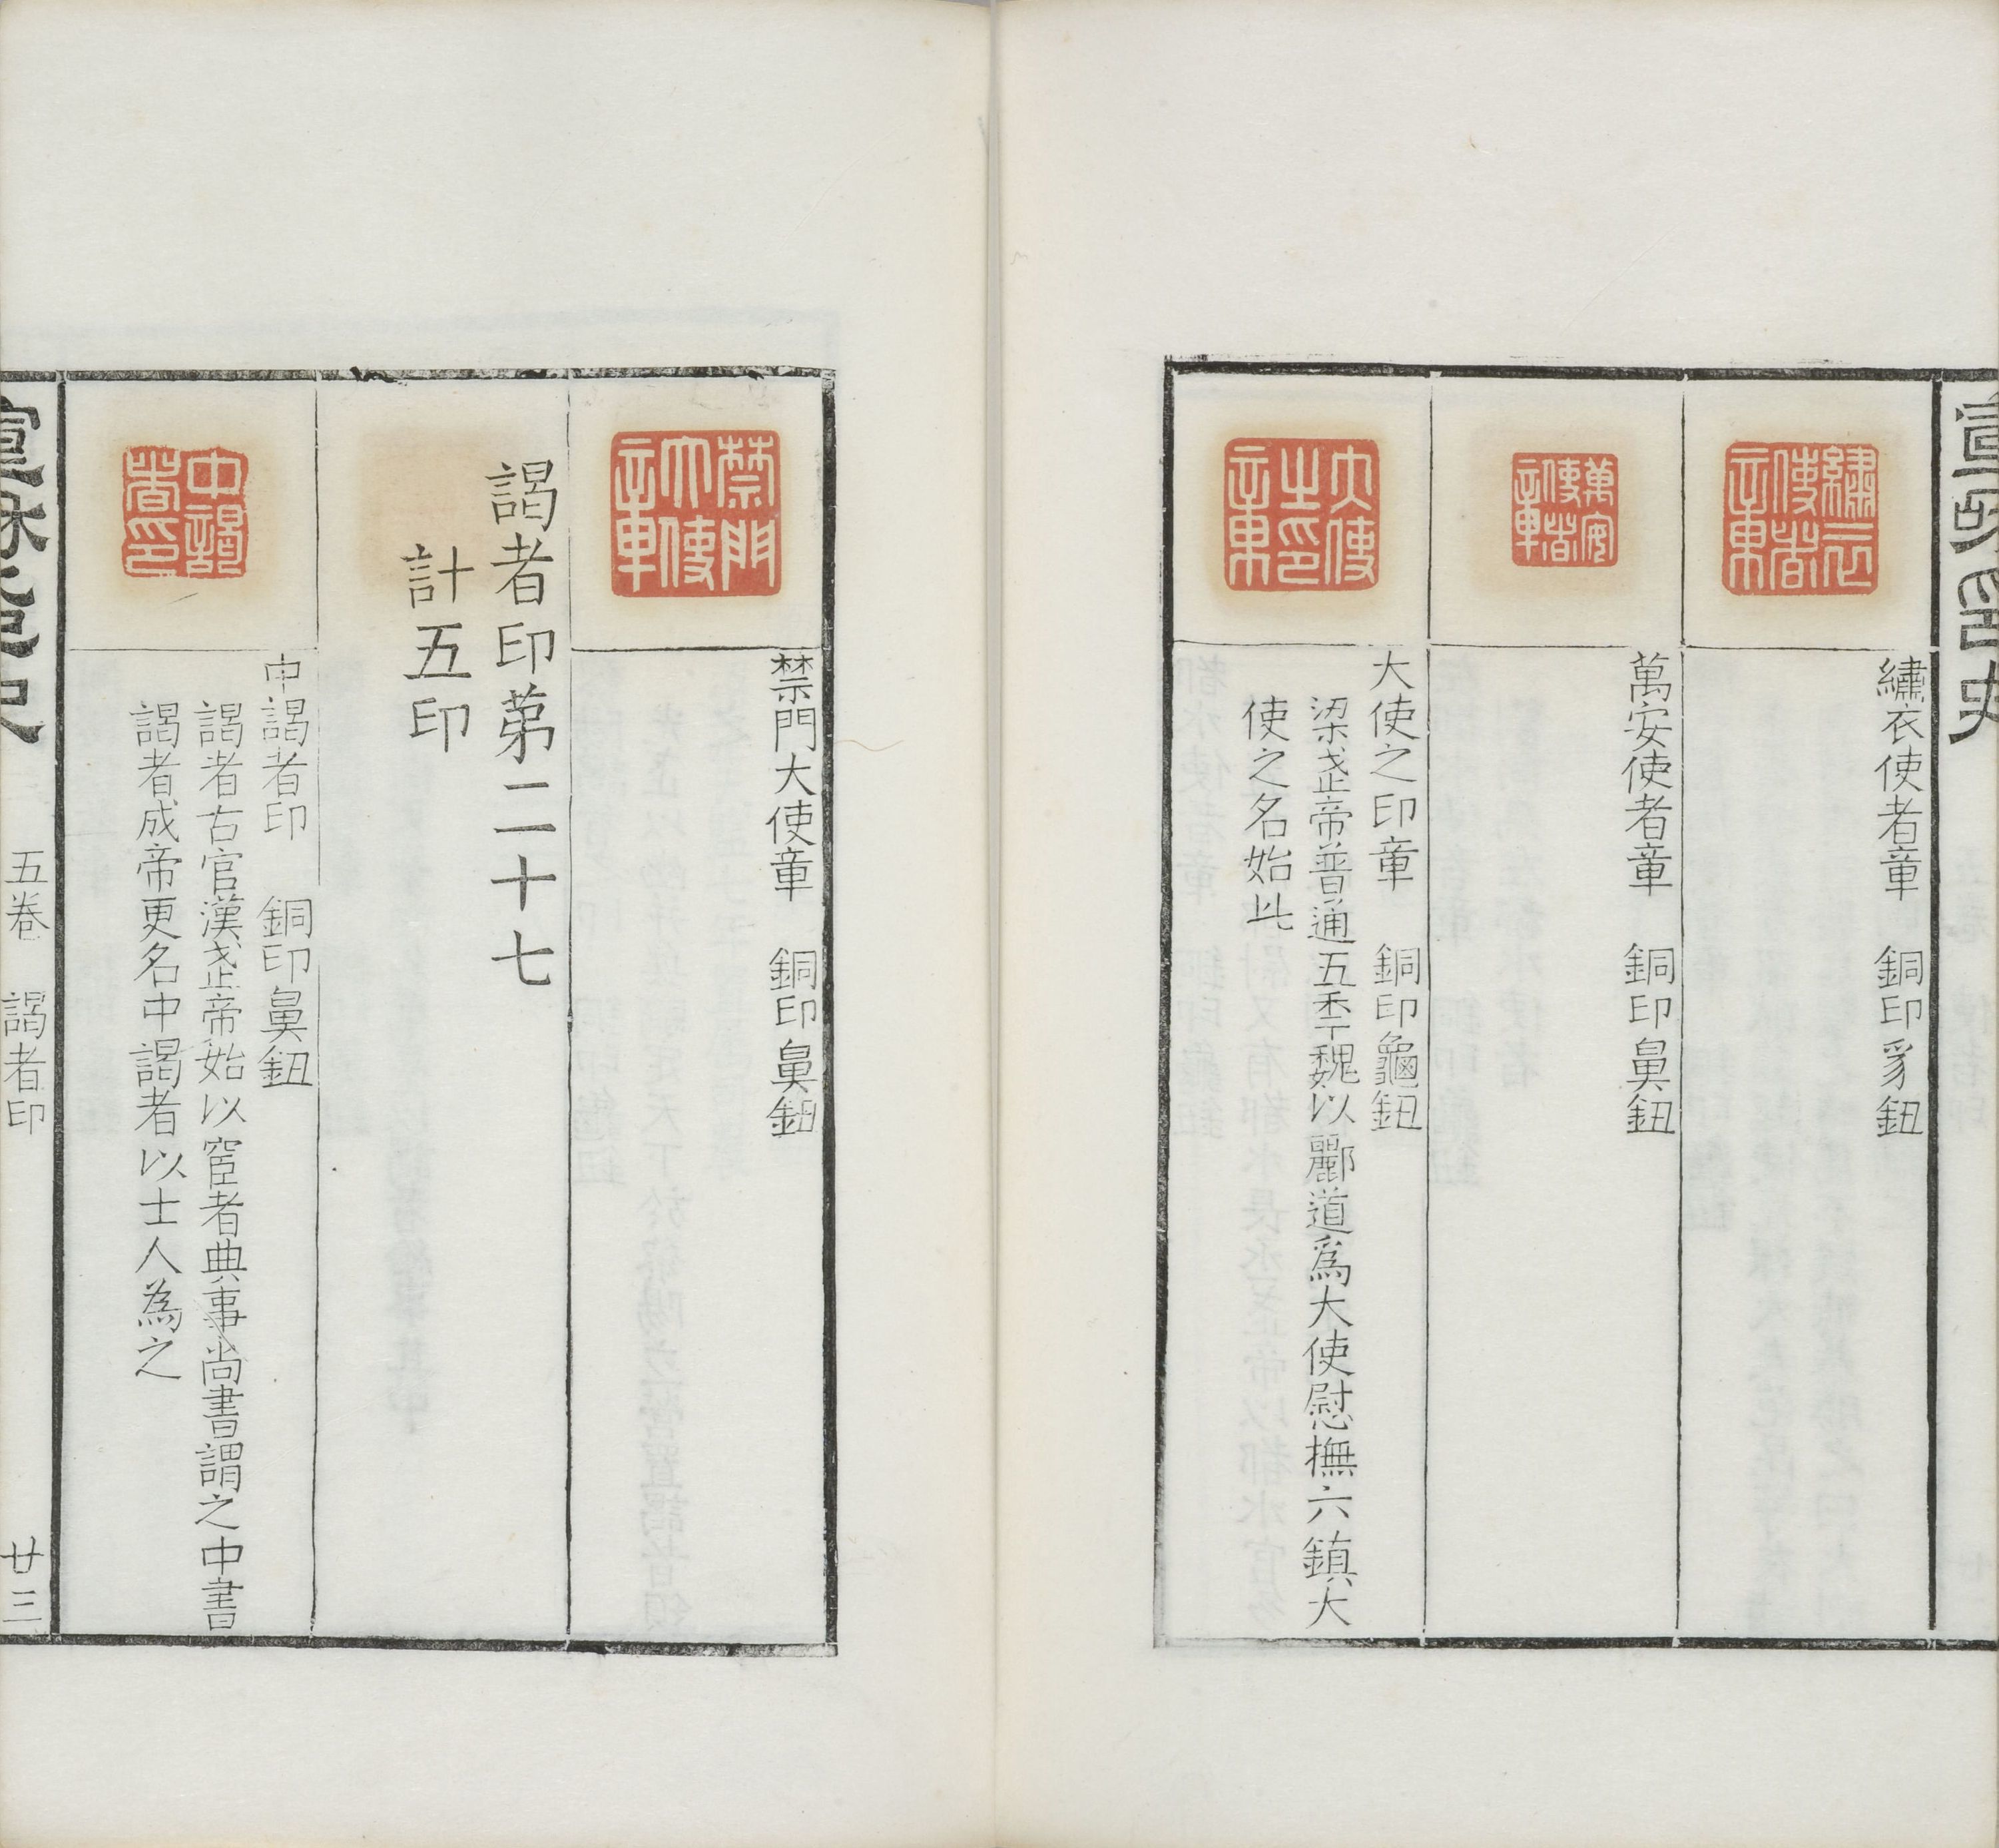 繡衣使者章
繡衣使者章　銅印豸鈕
萬安使者章
萬安使者章　銅印鼻鈕
大使之印章
大使之印章　銅印龜鈕
梁武帝普通五秊魏以酈道爲大使慰撫六鎮大
使之名始此
禁門大使章
禁門大使章　銅印鼻鈕
謁者印第二十七
計五印
中謁者印
中謁者印　銅印鼻鈕
謁者古官漢武帝始以宦者典事尚書謂之中書
謁者成帝更名中謁者以士人為之
五卷　謁者印
廿三